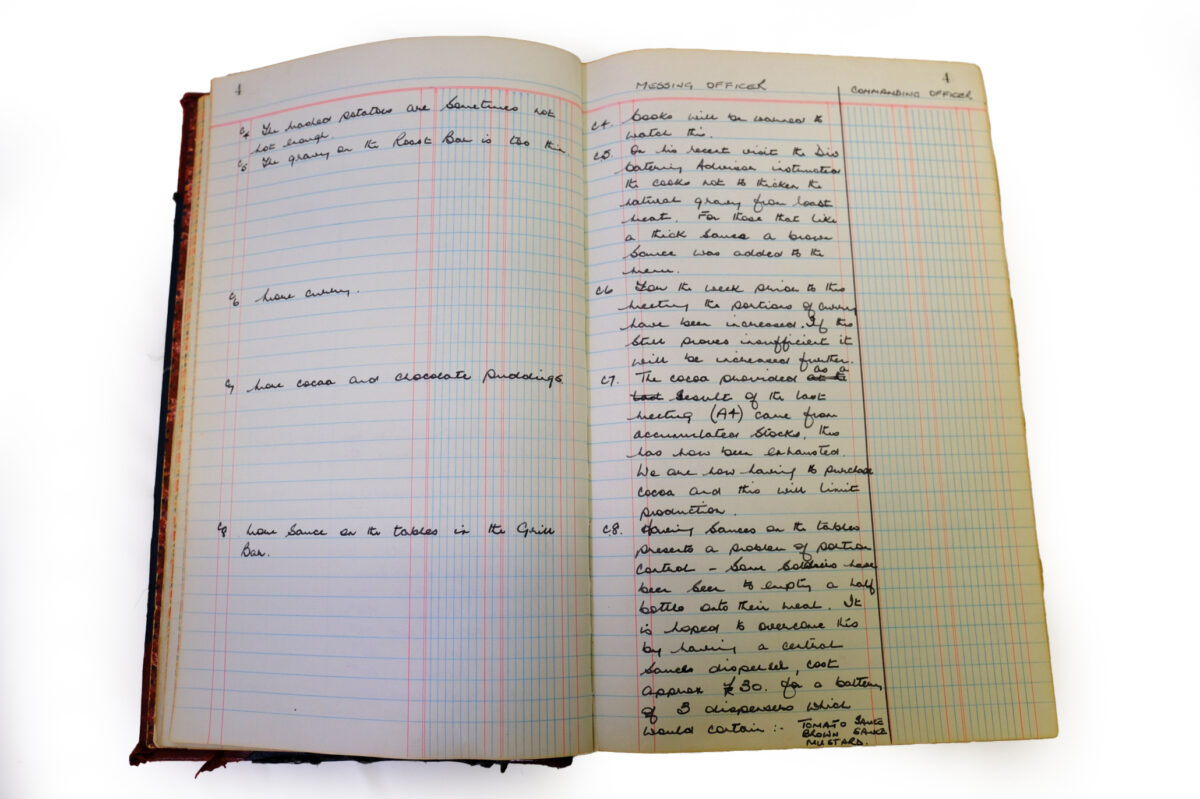 4
C4 The mashed potatoes are sometimes not
hot enough.
C5 The gravy on the Roast Bar is too thin.
C6 More curry.
C7 More cocoa and chocolate puddings.
C8 More sauce on the tables in the Grill
Bar.
4
MESSING OFFICER
COMMANDING OFFICER
C4. Cooks will be warned to
watch this.
C5. On his recent visit the Div
Catering Advisor instructed
the cooks not to thicken the
natural gravy from roast
meat. For those that like
a thick sauce a brown
sauce was added to the
menu.
C6 For the week prior to this
meeting the portions of curry
have been increased. If this
still proves insufficient it
will be increased further.
C7. The cocoa provided at the as a
last result of the last
meeting (A4) came from
accumulated stocks, this
has now been exhausted.
We are now having to purchase
cocoa and this will limit
production.
C8. Having sauces on the tables
presents a problem of portion
control - some soldiers have
been seen to empty a half
bottle onto their meal. It
is hoped to overcome this
by having a central
sauces dispenser, cost
approx £30. for a battery
of 3 dispensers which
would contain :- TOMATO SAUCE
BROWN SAUCE
MUSTARD.